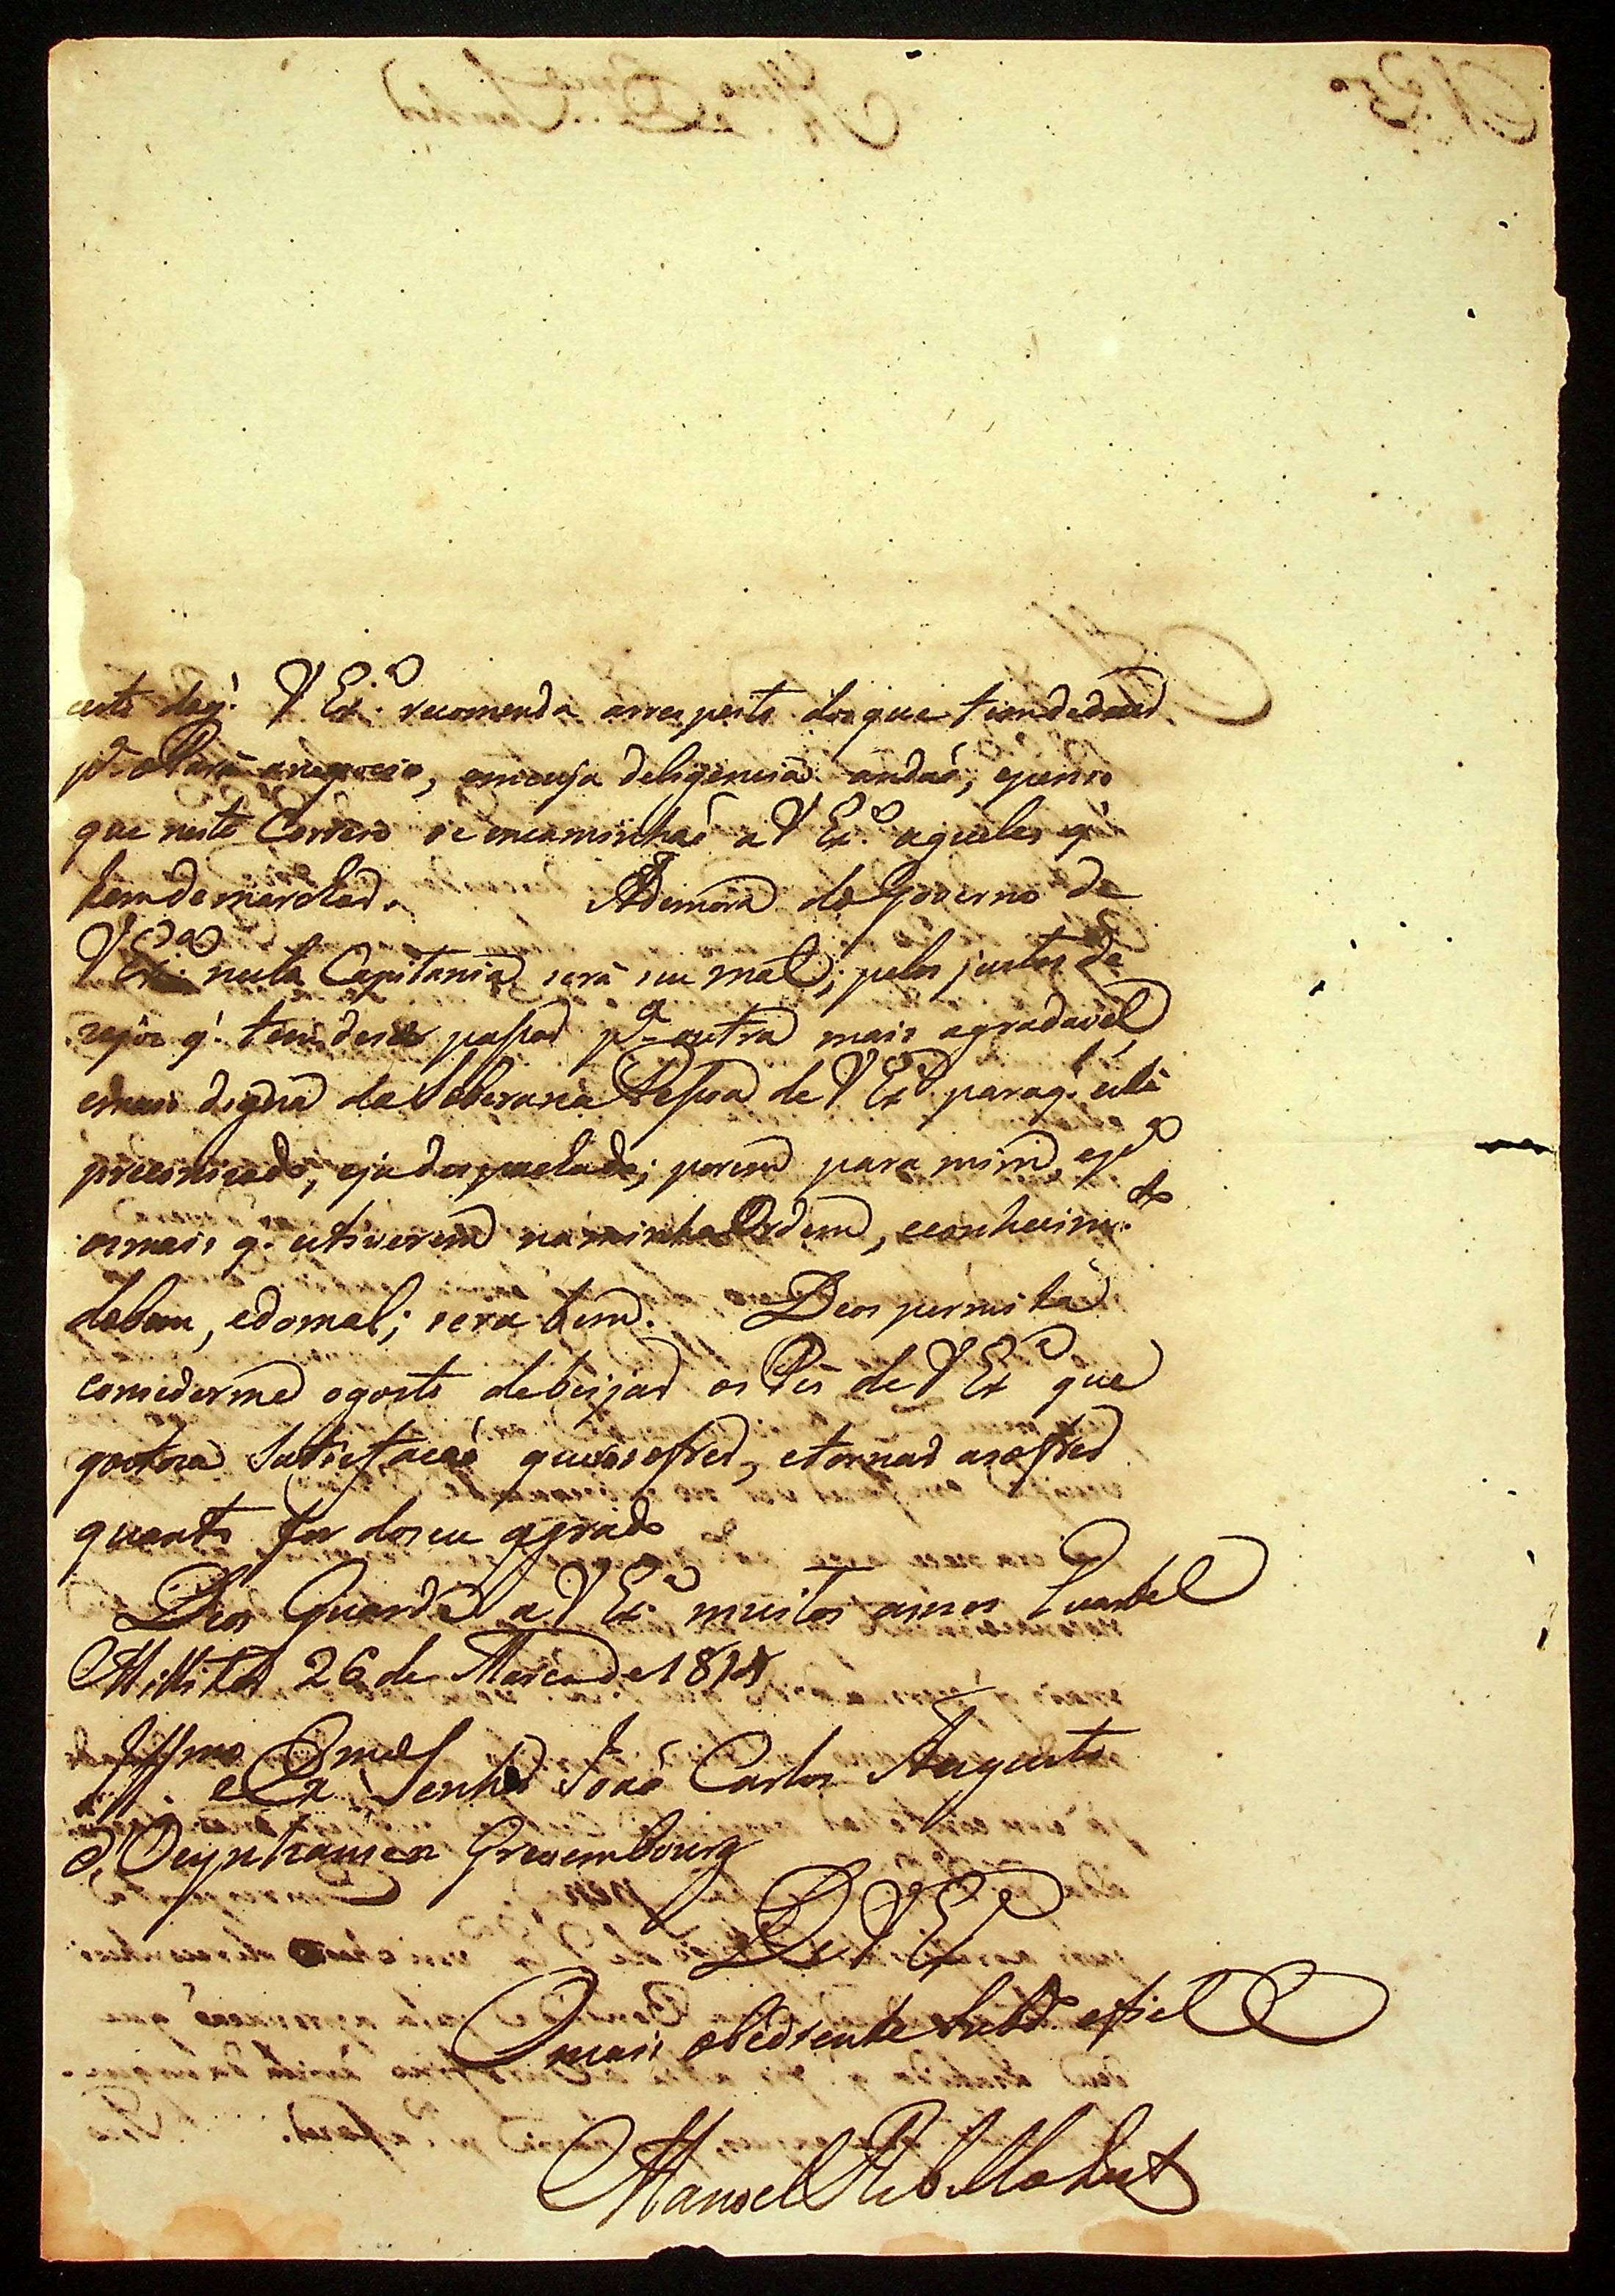 este deq.' V Ex.ª recomenda arrespeito dos que
p.ª o Pará a negocio, em cuja deligencia andaõ, e penso
que neste Correio se encaminhaõ a V Ex.ª aqueles q'
hem de marchar. A demora do Governo de
V Ex.ª nesta Capitania será seu mal; pelos justos de
zejos q.' tem de se passar p.ª outra mais agradavel,
e mais digna da Soberana Pesoa de V Ex.ª para q.' está
preconizado, e ja despachado; porem para mim, e p.ª
os mais q.' estiverem na minha Ordem, e conhecim.to
do bem, e do mal; sera bem. Deos permita
consederme o gosto de beijar os Pés de V Ex.ª que
Satisfacaõ
quanto for do seu agrado
Deos Guarde a V Ex.ª muitos annos Quartel
Millitar 26 de Março de 18
Ill.mo e Ex.mo Senhor Joaõ Carlos Augusto
d'Oeynhausen Grevembourg
De V Ex.ª
O mais obediente Subd.º e fiel
Manoel Rebello